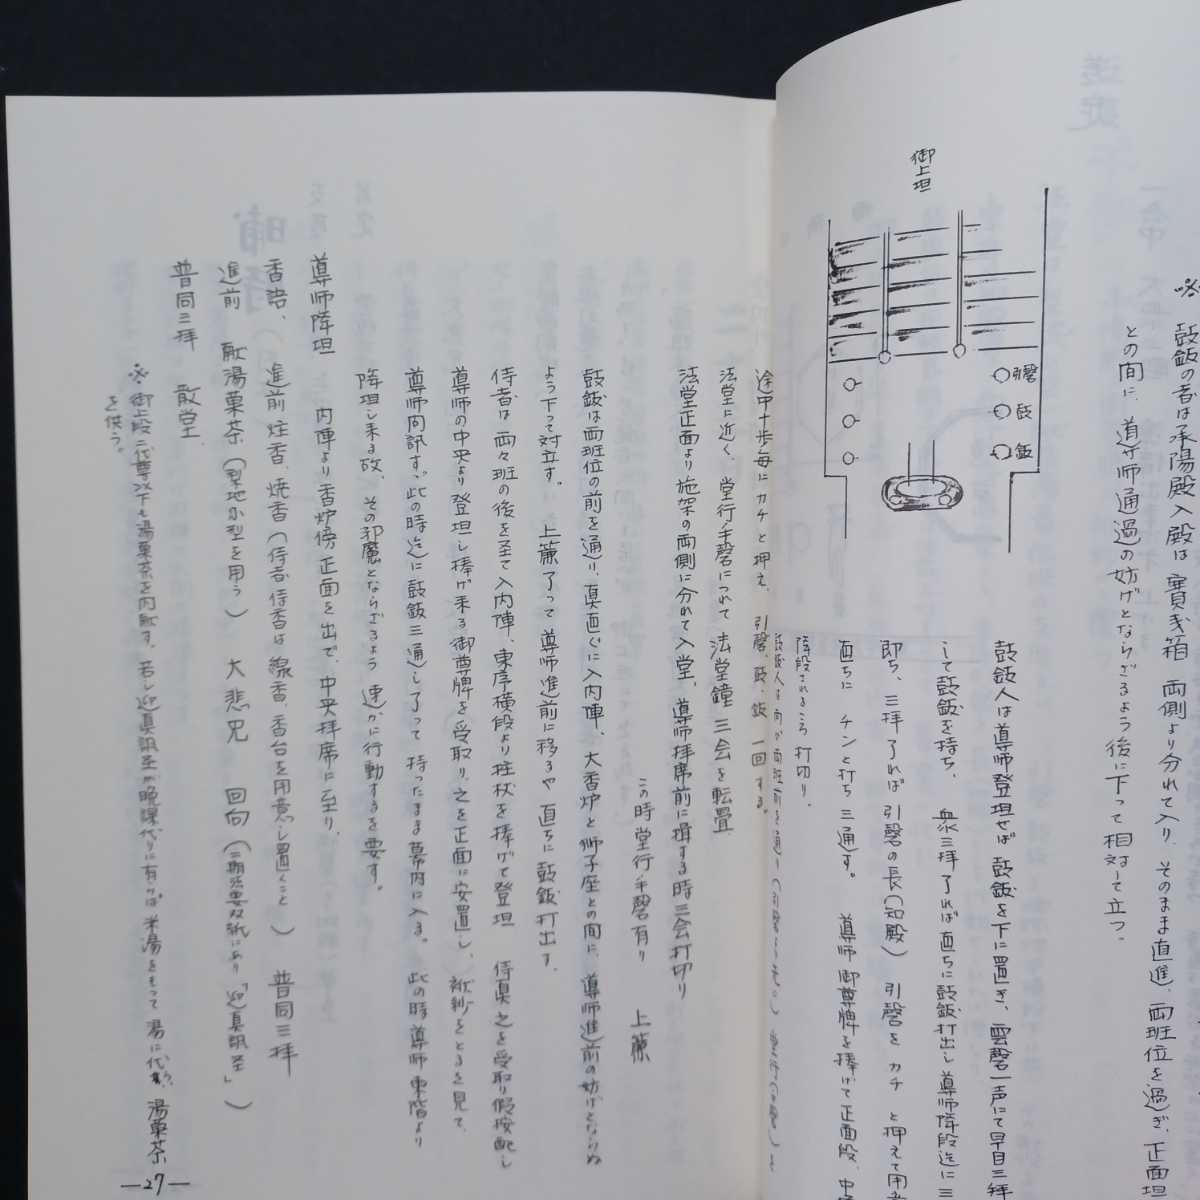 ※ 鼓鈸の者は承陽殿入殿は賽銭箱 両側より分れて入り、そのまま直進、両班位を過ぎ、正面坦
との間に、導師通過の妨げとならざるよう後に下って相対して立つ。
御上坦
引磬
鼓
鈸
鼓鈸人は導師登坦せば 鼓鈸を下に置き、雲磬一声にて早目三拝
して鼓鈸を持ち、衆三拝了れば直ちに鼓鈸打出し 導師降段迄に三
即ち、三拝了れば 引磬の長(知殿) 引磬を カチ と押えて用
直ちに チンと打ち 三通す。 導師 御尊牌を捧げて正面段、中
降段されるころ打切り、
途中十歩毎にカチと押え、引磬、鼓、鈸 一回する。
法堂に近く、堂行手磬につれて 法堂鐘 三会を転畳
法堂正面より 施架の両側に分れて入堂、導師拝席前に揖する時三会打切り
この時堂行手磬有り 上蔍
鼓鈸は両班位の前を通り、真直ぐに入内陣、大香炉と獅子座との間に、導師進前の妨げとならぬ
よう下って対立す。 上蔍了って 導師進前に移るや 直ちに鼓鈸打出す。
侍者は両々班の後を至て入内陣、東序横段より拄杖を捧げて登坦 侍真之を受取り假按配し
導師の中央より登坦し捧げ来る御尊牌を受取り、之を正面に安置し、 をとるを見て、
導師問訊す。此の時迄に鼓鈸三通し了って 持ったまま幕内に入る。 此の時導師東階より
降坦し来る故、その邪魔とならざるよう 速かに行動するを要す。
導師降坦 内陣より香炉傍正面を出で、中央拝席に至り、
香語、 進前 炷香、焼香(侍者 侍香は 線香、香台を用意し置くこと) 普同三拝
進前 献湯菓茶(梨地小型を用う) 大悲咒 回向(二期法要双紙にあり「迎真諷経」)
普同三拝 散堂.
※ 御上段二代尊以下も湯菓茶を内献す。若し迎真諷経が晩課代りに有れば 米湯をもって 湯に代 湯菓茶
を供う。
—27—